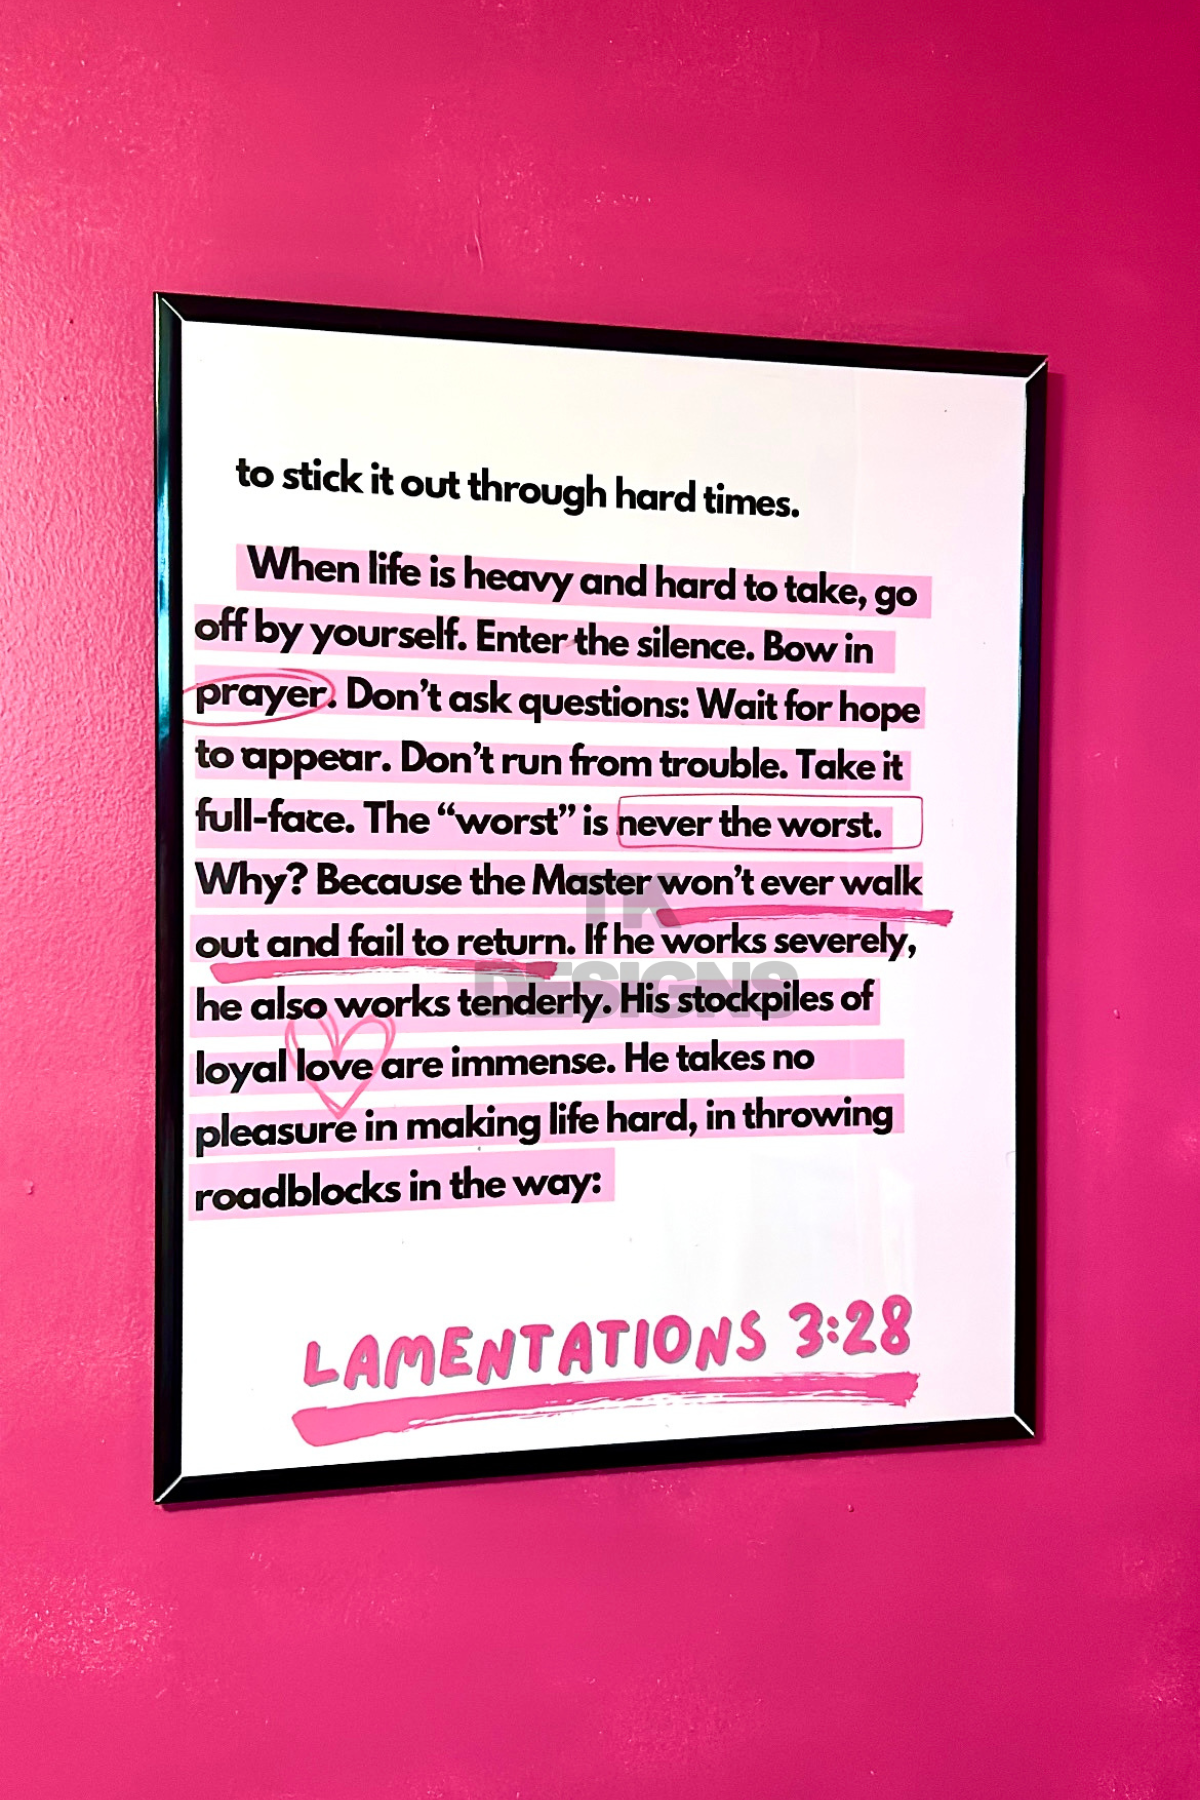 to stick it out through hard times.
When life is heavy and hard to take, go
off by yourself. Enter the silence. Bow in
prayer. Don't ask questions: Wait for hope
to appear. Don't run from trouble. Take it
full-face. The “worst” is never the worst.
Why? Because the Master won't ever walk
out and fail to return. If he works severely,
he also works tenderly. His stockpiles of
loyal love are immense. He takes no
pleasure in making life hard, in throwing
roadblocks in the way:
LAMENTATIONS 3:28
TK
DESIGNS